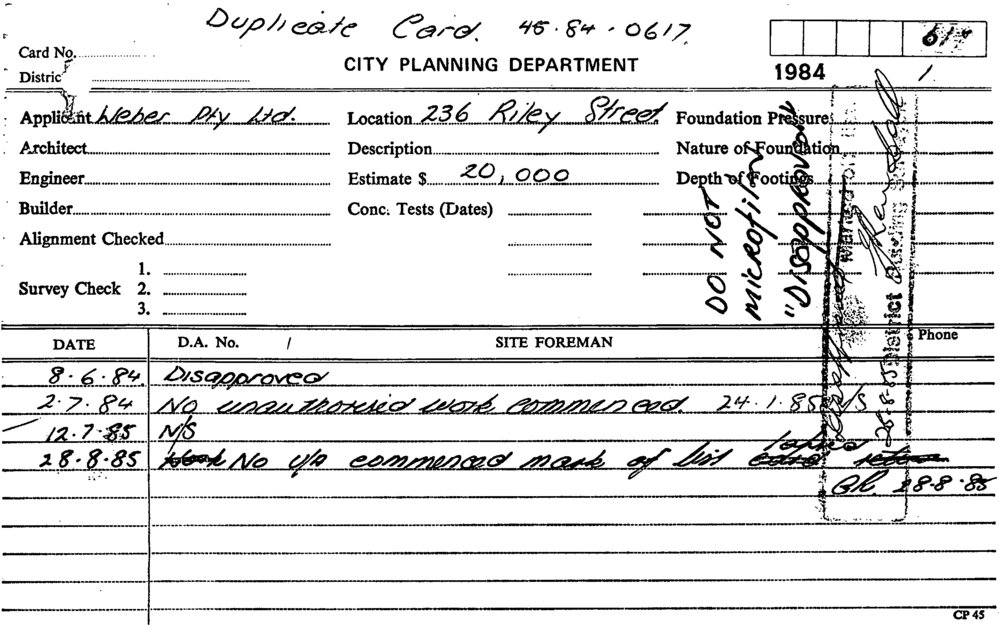 Duplicate Card. 45·84·0617.
Card No.
CITY PLANNING DEPARTMENT
617
Distric
1984
Applicant Weber Pty Ltd. Location 236 Riley Street Foundation Pressure
Architect Description Nature of Foundation
Engineer Estimate $ 20,000 Depth of Footings
Builder Conc. Tests (Dates)
Alignment Checked
1.
Survey Check 2.
3.
DO NOT
MICROFILM
"DISAPPROVED"
Marked on
District Building
28-8-85
DATE D.A. No. / SITE FOREMAN Phone
8·6·84. Disapproved
2·7·84 No unauthorised work commenced. 24·1·85 N/S
12.7.85 N/S
28·8·85 No u/a commenced mark of list
28·8·85
CP 45